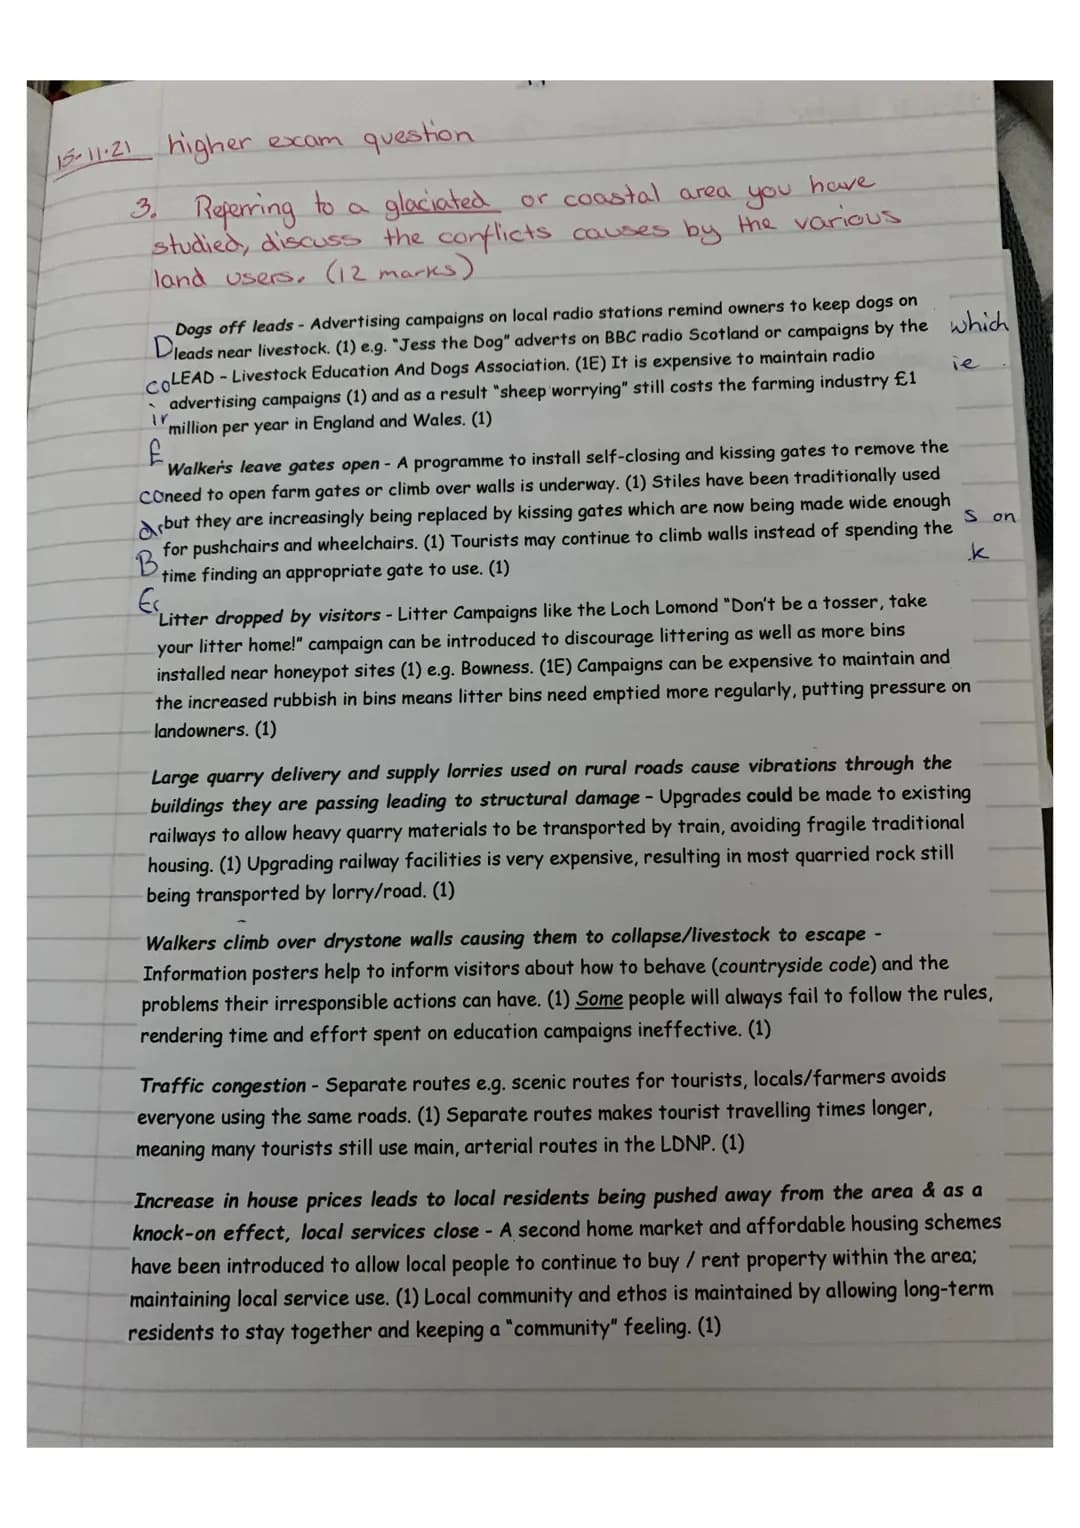 15-11-21 higher exam question
3. Referring to a glaciated or coastal area you have
studied, discuss the conflicts causes by the various
land users. (12 marks)
Dogs off leads - Advertising campaigns on local radio stations remind owners to keep dogs on
leads near livestock. (1) e.g. "Jess the Dog" adverts on BBC radio Scotland or campaigns by the which
LEAD - Livestock Education And Dogs Association. (1E) It is expensive to maintain radio ie
advertising campaigns (1) and as a result "sheep worrying" still costs the farming industry £1
million per year in England and Wales. (1)
Walkers leave gates open - A programme to install self-closing and kissing gates to remove the
need to open farm gates or climb over walls is underway. (1) Stiles have been traditionally used
but they are increasingly being replaced by kissing gates which are now being made wide enough s on
for pushchairs and wheelchairs. (1) Tourists may continue to climb walls instead of spending the k
time finding an appropriate gate to use. (1)
Litter dropped by visitors - Litter Campaigns like the Loch Lomond "Don't be a tosser, take
your litter home!" campaign can be introduced to discourage littering as well as more bins
installed near honeypot sites (1) e.g. Bowness. (1E) Campaigns can be expensive to maintain and
the increased rubbish in bins means litter bins need emptied more regularly, putting pressure on
landowners. (1)
Large quarry delivery and supply lorries used on rural roads cause vibrations through the
buildings they are passing leading to structural damage - Upgrades could be made to existing
railways to allow heavy quarry materials to be transported by train, avoiding fragile traditional
housing. (1) Upgrading railway facilities is very expensive, resulting in most quarried rock still
being transported by lorry/road. (1)
Walkers climb over drystone walls causing them to collapse/livestock to escape -
Information posters help to inform visitors about how to behave (countryside code) and the
problems their irresponsible actions can have. (1) Some people will always fail to follow the rules,
rendering time and effort spent on education campaigns ineffective. (1)
Traffic congestion - Separate routes e.g. scenic routes for tourists, locals/farmers avoids
everyone using the same roads. (1) Separate routes makes tourist travelling times longer,
meaning many tourists still use main, arterial routes in the LDNP. (1)
Increase in house prices leads to local residents being pushed away from the area & as a
knock-on effect, local services close - A second home market and affordable housing schemes
have been introduced to allow local people to continue to buy / rent property within the area;
maintaining local service use. (1) Local community and ethos is maintained by allowing long-term
residents to stay together and keeping a "community" feeling. (1)